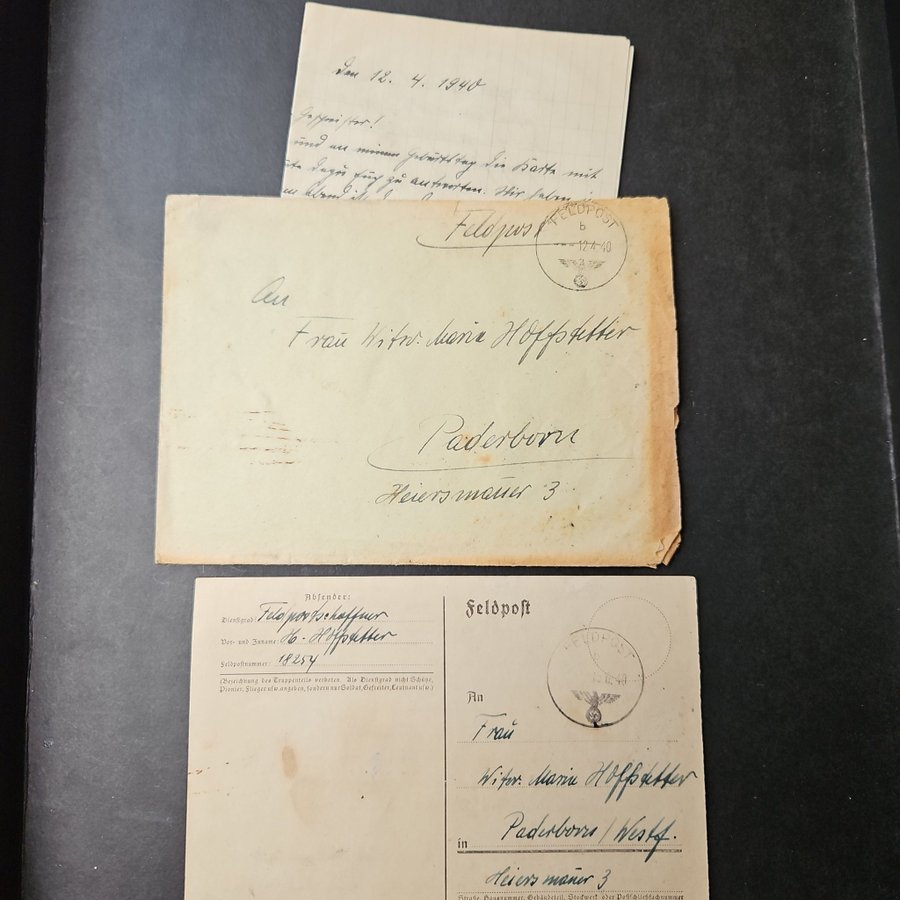 Den 12. 4. 1940
Geschwister!
und an meinen Geburtstag die Karte mit
dazu Euch zu antworten. Wir haben
Feldpost
FELDPOST
b
12.4.40
An
Frau Witw. Maria Hoffstetter
Paderborn
Heiersmauer 3
Absender:
Dienstgrad: Feldpostschaffner
Vor- und Zuname: H. Hoffstetter
Feldpostnummer: 18254
(Bezeichnung des Truppenteils verboten. Als Dienstgrad nicht Schütze,
Pionier, Flieger usw. angeben, sondern nur Soldat, Gefreiter, Leutnant usw.)
Feldpost
FELDPOST
40
An
Frau
Witw. Maria Hoffstetter
in Paderborn / Westf.
Heiersmauer 3
Straße, Hausnummer, Gebäudeteil, Stockwerk oder Postschließfachnummer